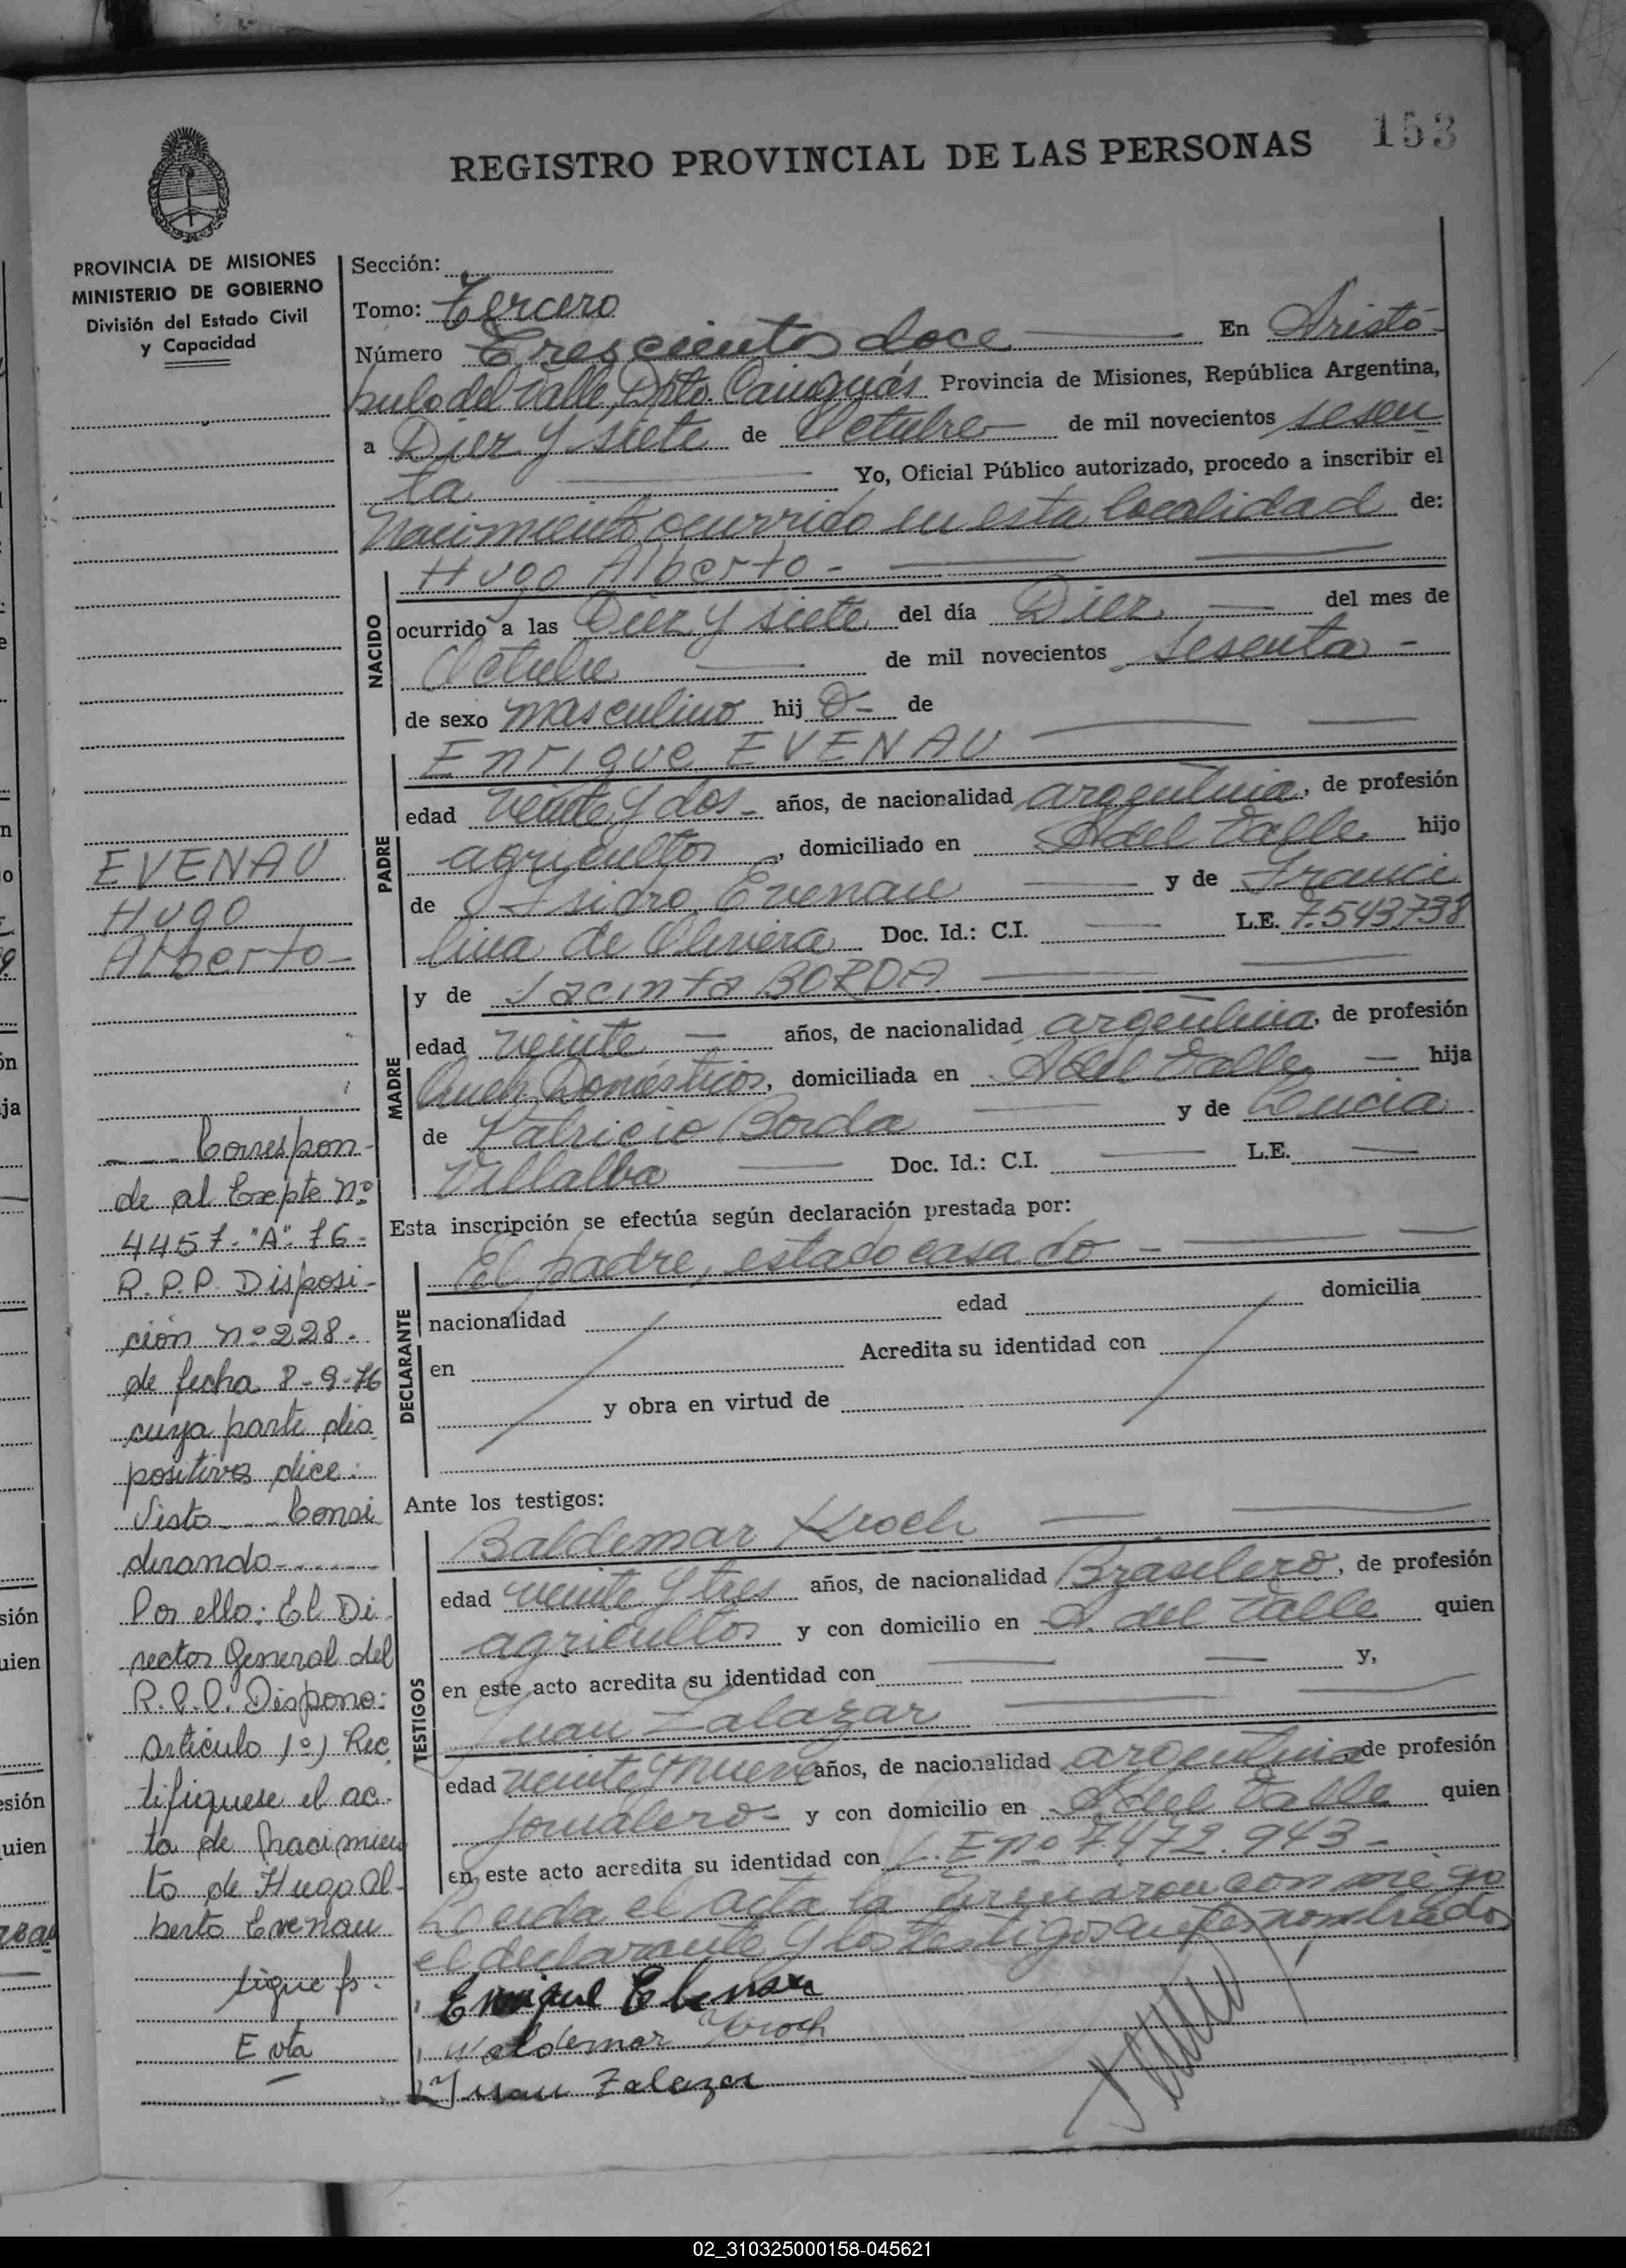 153
REGISTRO PROVINCIAL DE LAS PERSONAS
PROVINCIA DE MISIONES
MINISTERIO DE GOBIERNO
División del Estado Civil
y Capacidad
EVENAU
Hugo
Alberto -
- - - Correspon-
de al Expte nº
4457-"A"-76-
R.P.P. Disposi-
ción nº 228-
de fecha 8-9-76
cuya parte dis
positiva dice:
Visto - - - Consi
derando - - - - - -
Por ello: El Di
rector General del
R.P.P. Dispone:
Artículo 1º) Rec
tifiquese el ac-
ta de nacimien
to de Hugo Al-
berto Evenau
sigue fs.
E vta
Sección:
Tomo: Tercero
Número Trescientos doce En Aristó-
bulo del Valle, Dpto. Cainguás Provincia de Misiones, República Argentina,
a Diez y siete de Octubre de mil novecientos sesen
ta Yo, Oficial Público autorizado, procedo a inscribir el
Nacimiento ocurrido en esta localidad de:
NACIDO
Hugo Alberto -
ocurrido a las Diez y siete del día Diez del mes de
Octubre de mil novecientos Sesenta -
de sexo masculino hij o- de
PADRE
Enrique EVENAU
edad veinte y dos - años, de nacionalidad argentina, de profesión
agricultor, domiciliado en A del Valle hijo
de Isidro Evenau y de Franci
lina de Olivera Doc. Id.: C.I. L.E. 7.543738
MADRE
y de Jacinta BORDA
edad veinte años, de nacionalidad argentina, de profesión
Queh. Domésticos, domiciliada en A del Valle hija
de Patricio Borda y de Lucia
Villalba Doc. Id.: C.I. L.E.
Esta inscripción se efectúa según declaración prestada por:
DECLARANTE
El padre, estado casado -
nacionalidad edad domicilia
en Acredita su identidad con
y obra en virtud de
Ante los testigos:
TESTIGOS
Baldemar Kroch
edad veinte y tres años, de nacionalidad Brasilero, de profesión
agricultor y con domicilio en A. del Valle quien
en este acto acredita su identidad con y,
Juan Zalazar
edad veinte y nueve años, de nacionalidad argentina de profesión
jornalero - y con domicilio en A del Valle quien
en este acto acredita su identidad con L. E nº 7.472.943 -
Leida el acta la firmaron conmigo
el declarante y los testigos antes nombrados
Enrique Ebenau
Waldemar Kroch
Juan Zalazar
02_310325000158-045621